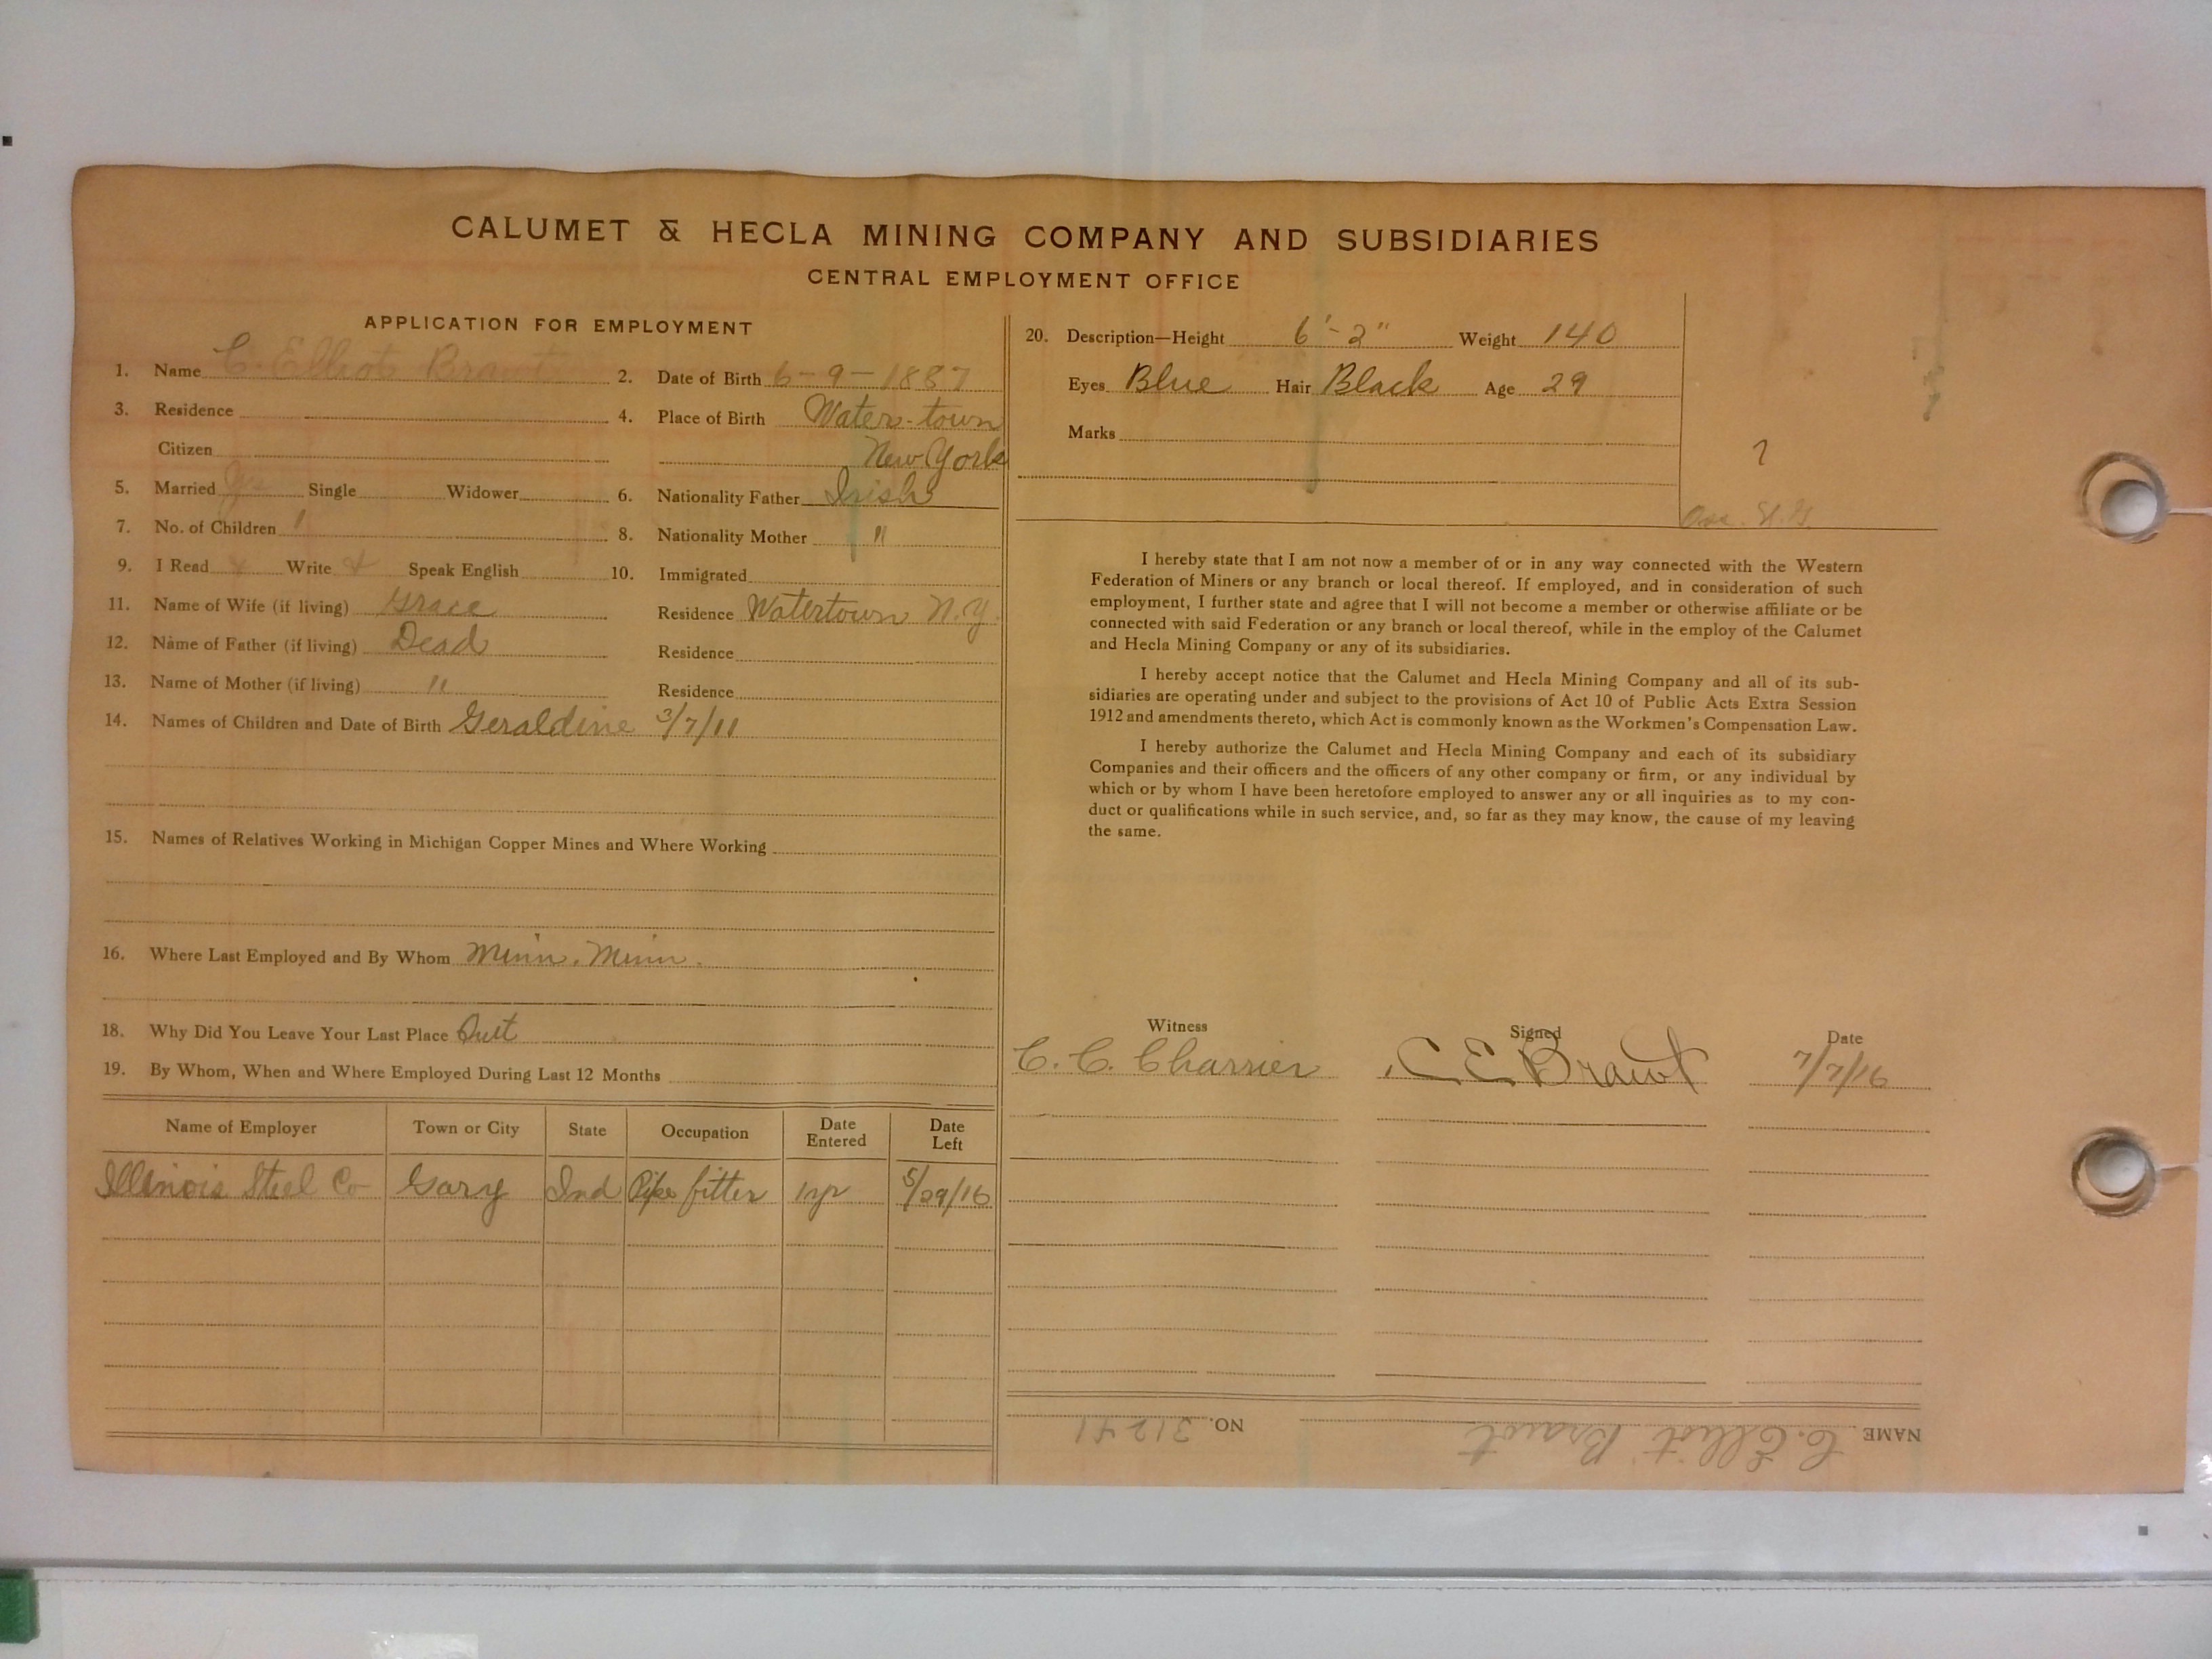 CALUMET & HECLA MINING COMPANY AND SUBSIDIARIES
CENTRAL EMPLOYMENT OFFICE
APPLICATION FOR EMPLOYMENT
1. Name C. Elliot Brawt 2. Date of Birth 6-9-1887
3. Residence 4. Place of Birth Water-town
Citizen New York
5. Married Yes Single Widower 6. Nationality Father Irish
7. No. of Children 1 8. Nationality Mother "
9. I Read Write Speak English 10. Immigrated
11. Name of Wife (if living) Grace Residence Watertown N.Y.
12. Name of Father (if living) Dead Residence
13. Name of Mother (if living) " Residence
14. Names of Children and Date of Birth Geraldine 3/7/11
15. Names of Relatives Working in Michigan Copper Mines and Where Working
16. Where Last Employed and By Whom Minn. Minn.
18. Why Did You Leave Your Last Place Quit
19. By Whom, When and Where Employed During Last 12 Months
Name of Employer Town or City State Occupation Date Entered Date Left
Illinois Steel Co Gary Ind Pipe fitter 1 yr 5/29/16
20. Description—Height 6'-2" Weight 140
Eyes Blue Hair Black Age 29
Marks
?
I hereby state that I am not now a member of or in any way connected with the Western
Federation of Miners or any branch or local thereof. If employed, and in consideration of such
employment, I further state and agree that I will not become a member or otherwise affiliate or be
connected with said Federation or any branch or local thereof, while in the employ of the Calumet
and Hecla Mining Company or any of its subsidiaries.
I hereby accept notice that the Calumet and Hecla Mining Company and all of its sub-
sidiaries are operating under and subject to the provisions of Act 10 of Public Acts Extra Session
1912 and amendments thereto, which Act is commonly known as the Workmen's Compensation Law.
I hereby authorize the Calumet and Hecla Mining Company and each of its subsidiary
Companies and their officers and the officers of any other company or firm, or any individual by
which or by whom I have been heretofore employed to answer any or all inquiries as to my con-
duct or qualifications while in such service, and, so far as they may know, the cause of my leaving
the same.
Witness Signed Date
C. C. Charrier C E Brawt 7/7/16
NAME C. Elliot Brawt NO. 31241